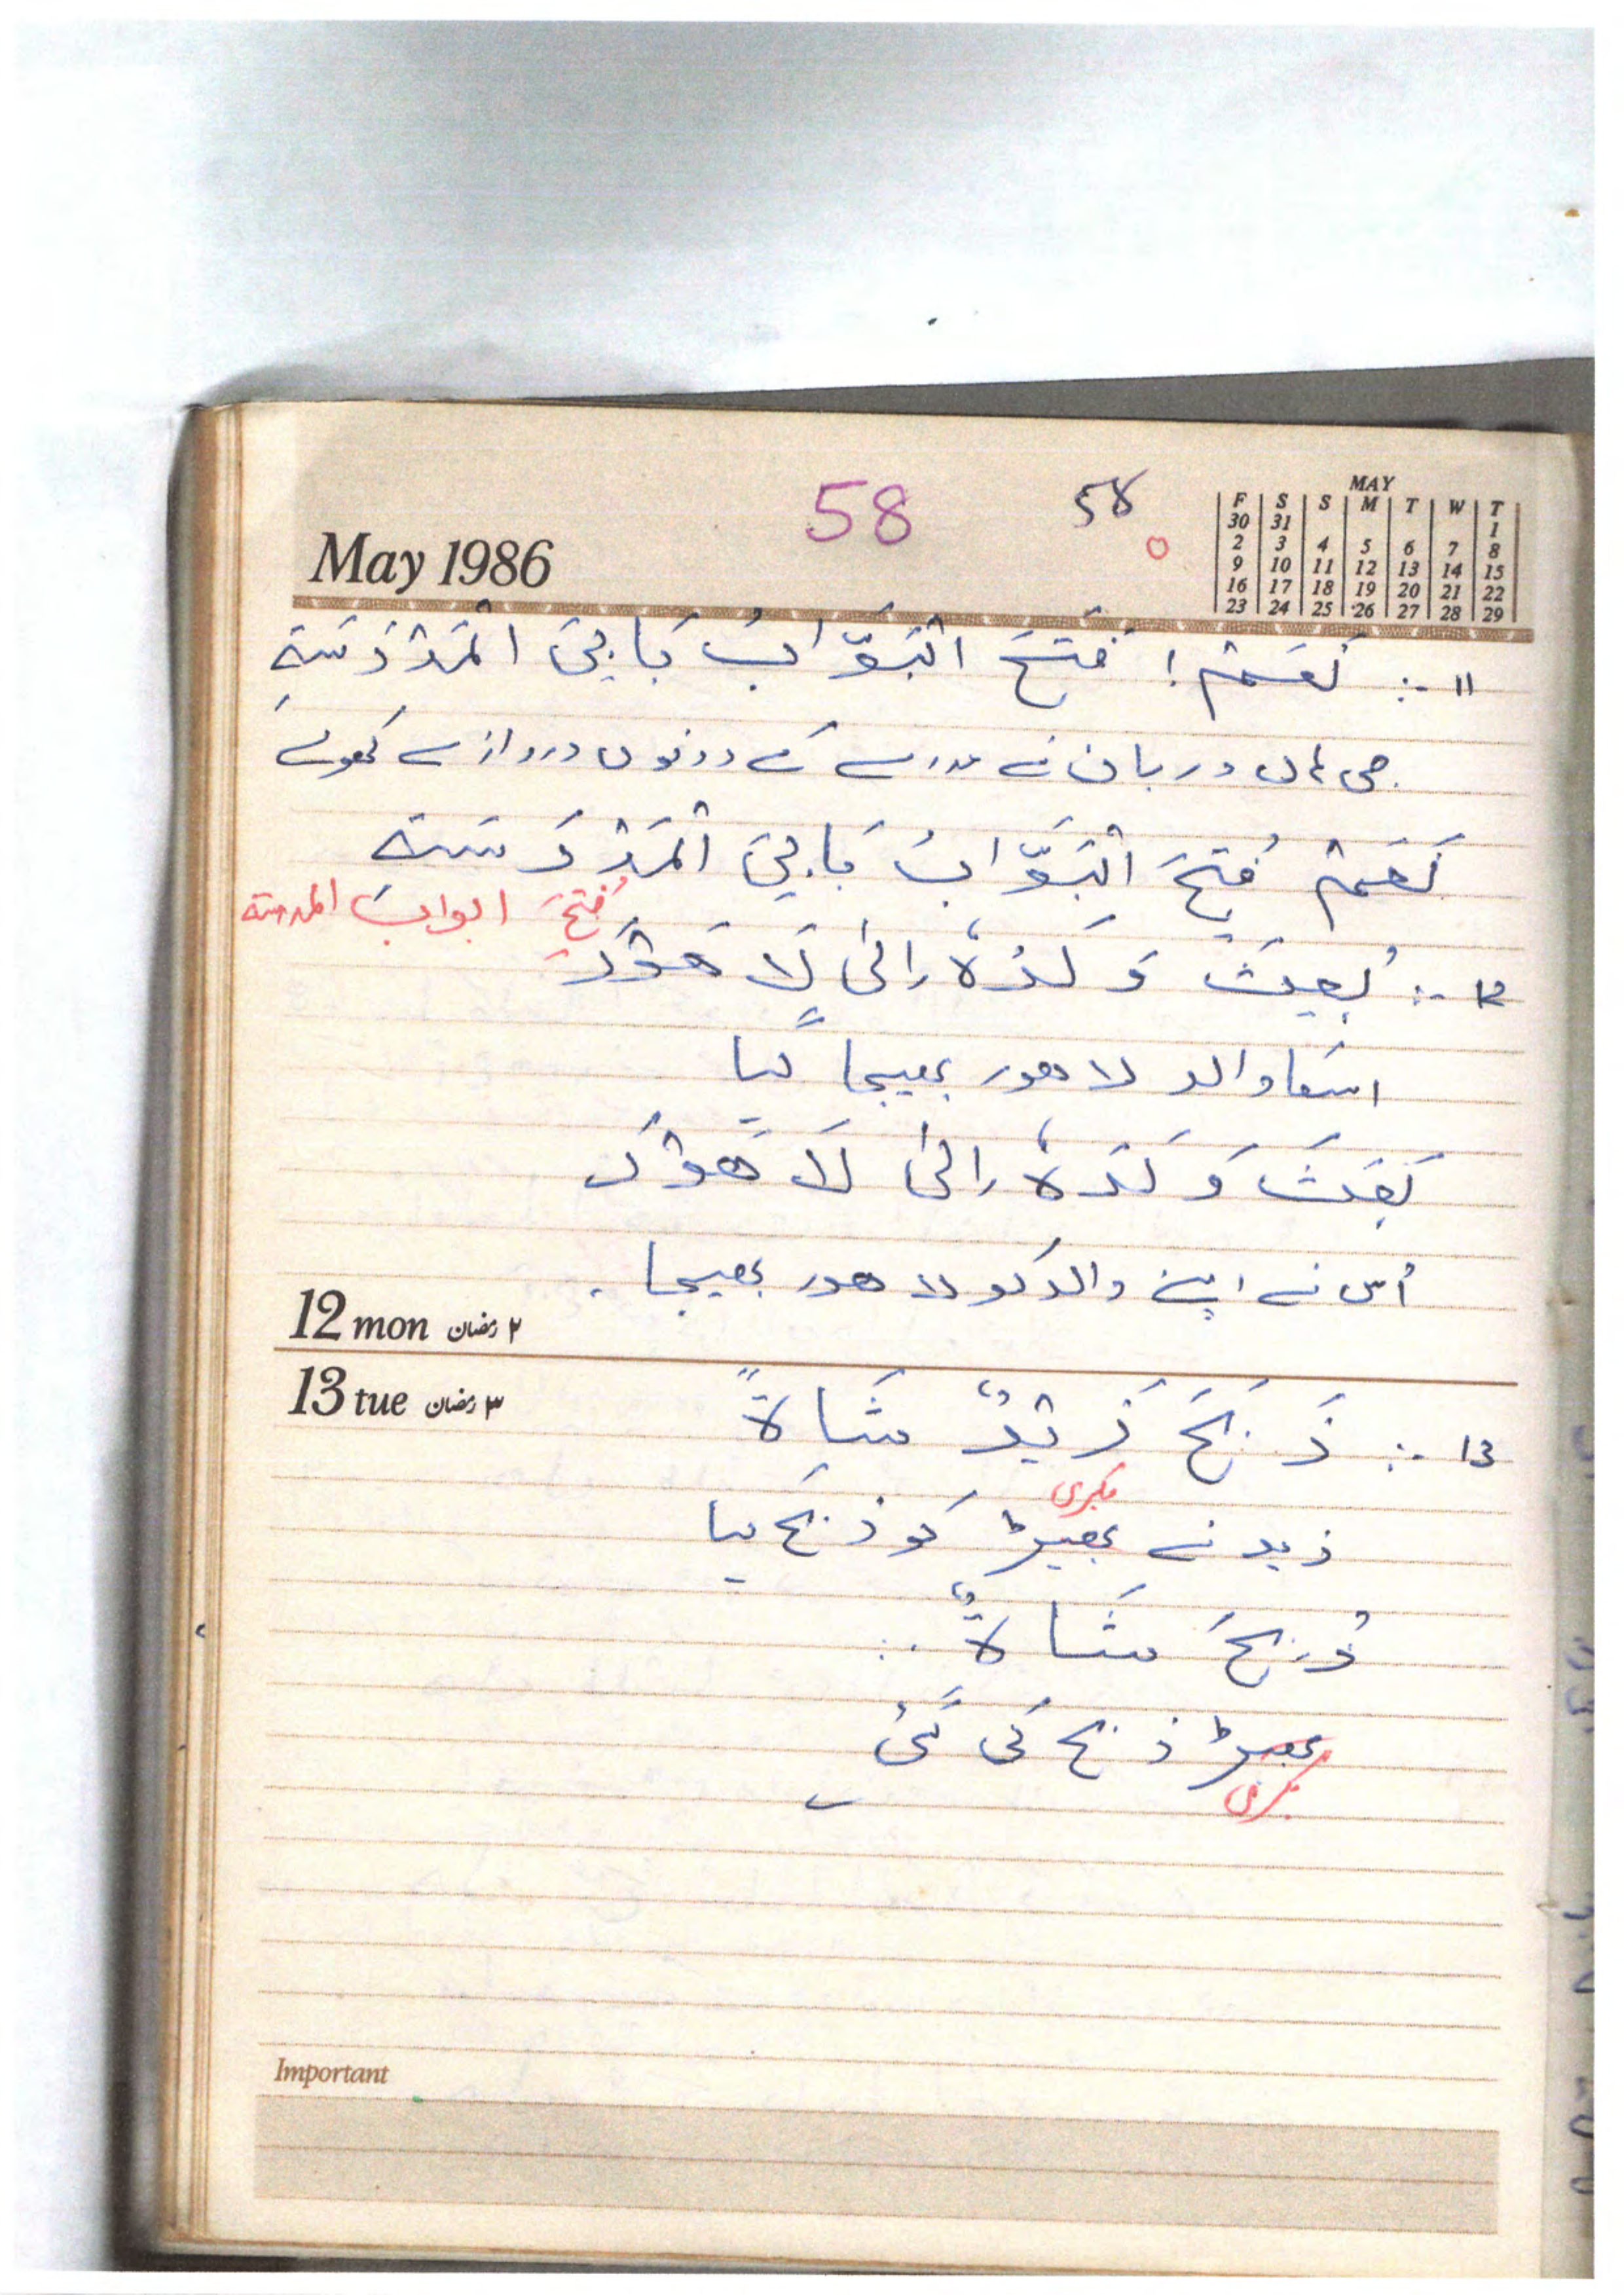 58 58
May 1986
MAY
F S S M T W T
30 31 1
2 3 4 5 6 7 8
9 10 11 12 13 14 15
16 17 18 19 20 21 22
23 24 25 26 27 28 29
11 :- نَعَمْ ! فَتَحَ الْبَوَّابُ بَابَيِ الْمَدْرَسَةِ
جی ہاں دربان نے مدرسے کے دونوں دروازے کھولے
نَعَمْ فُتِحَ الْبَوَّابُ بَابَيِ الْمَدْرَسَةِ
فُتِحَ ابواب المدرسة
12 :- بُعِثَ وَلَدُهُ إِلَى لَاهَوْرَ
اسکا والد لاھور بھیجا گیا
بَعَثَ وَلَدَهُ إِلَى لَاهَوْرَ
اُس نے اپنے والد کو لاھور بھیجا.
12 mon ۲ رمضان
13 tue ۳ رمضان
13 :- ذَبَحَ زَيْدٌ شَاةً
بکری
زید نے بھیڑ کو ذبح کیا
ذُبِحَ شَاةٌ
بھیڑ ذبح کی گئی
بکری
Important